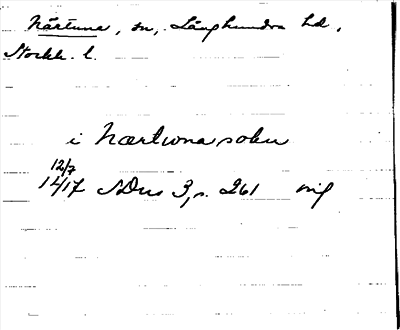 Närtuna, sn, Långhundra hd,
Stockh. l.
i Nærtwna sokn
12/7
1417 SDns 3, s. 261 mf